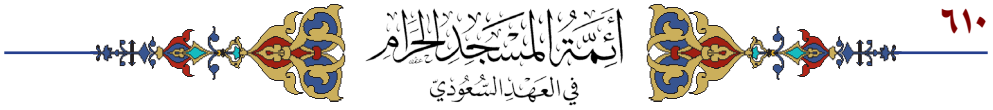 ٦١٠
أَئِمَّةُ المَسْجِدِ الحَرَامِ
في العَهْدِ السُّعُودِيّ